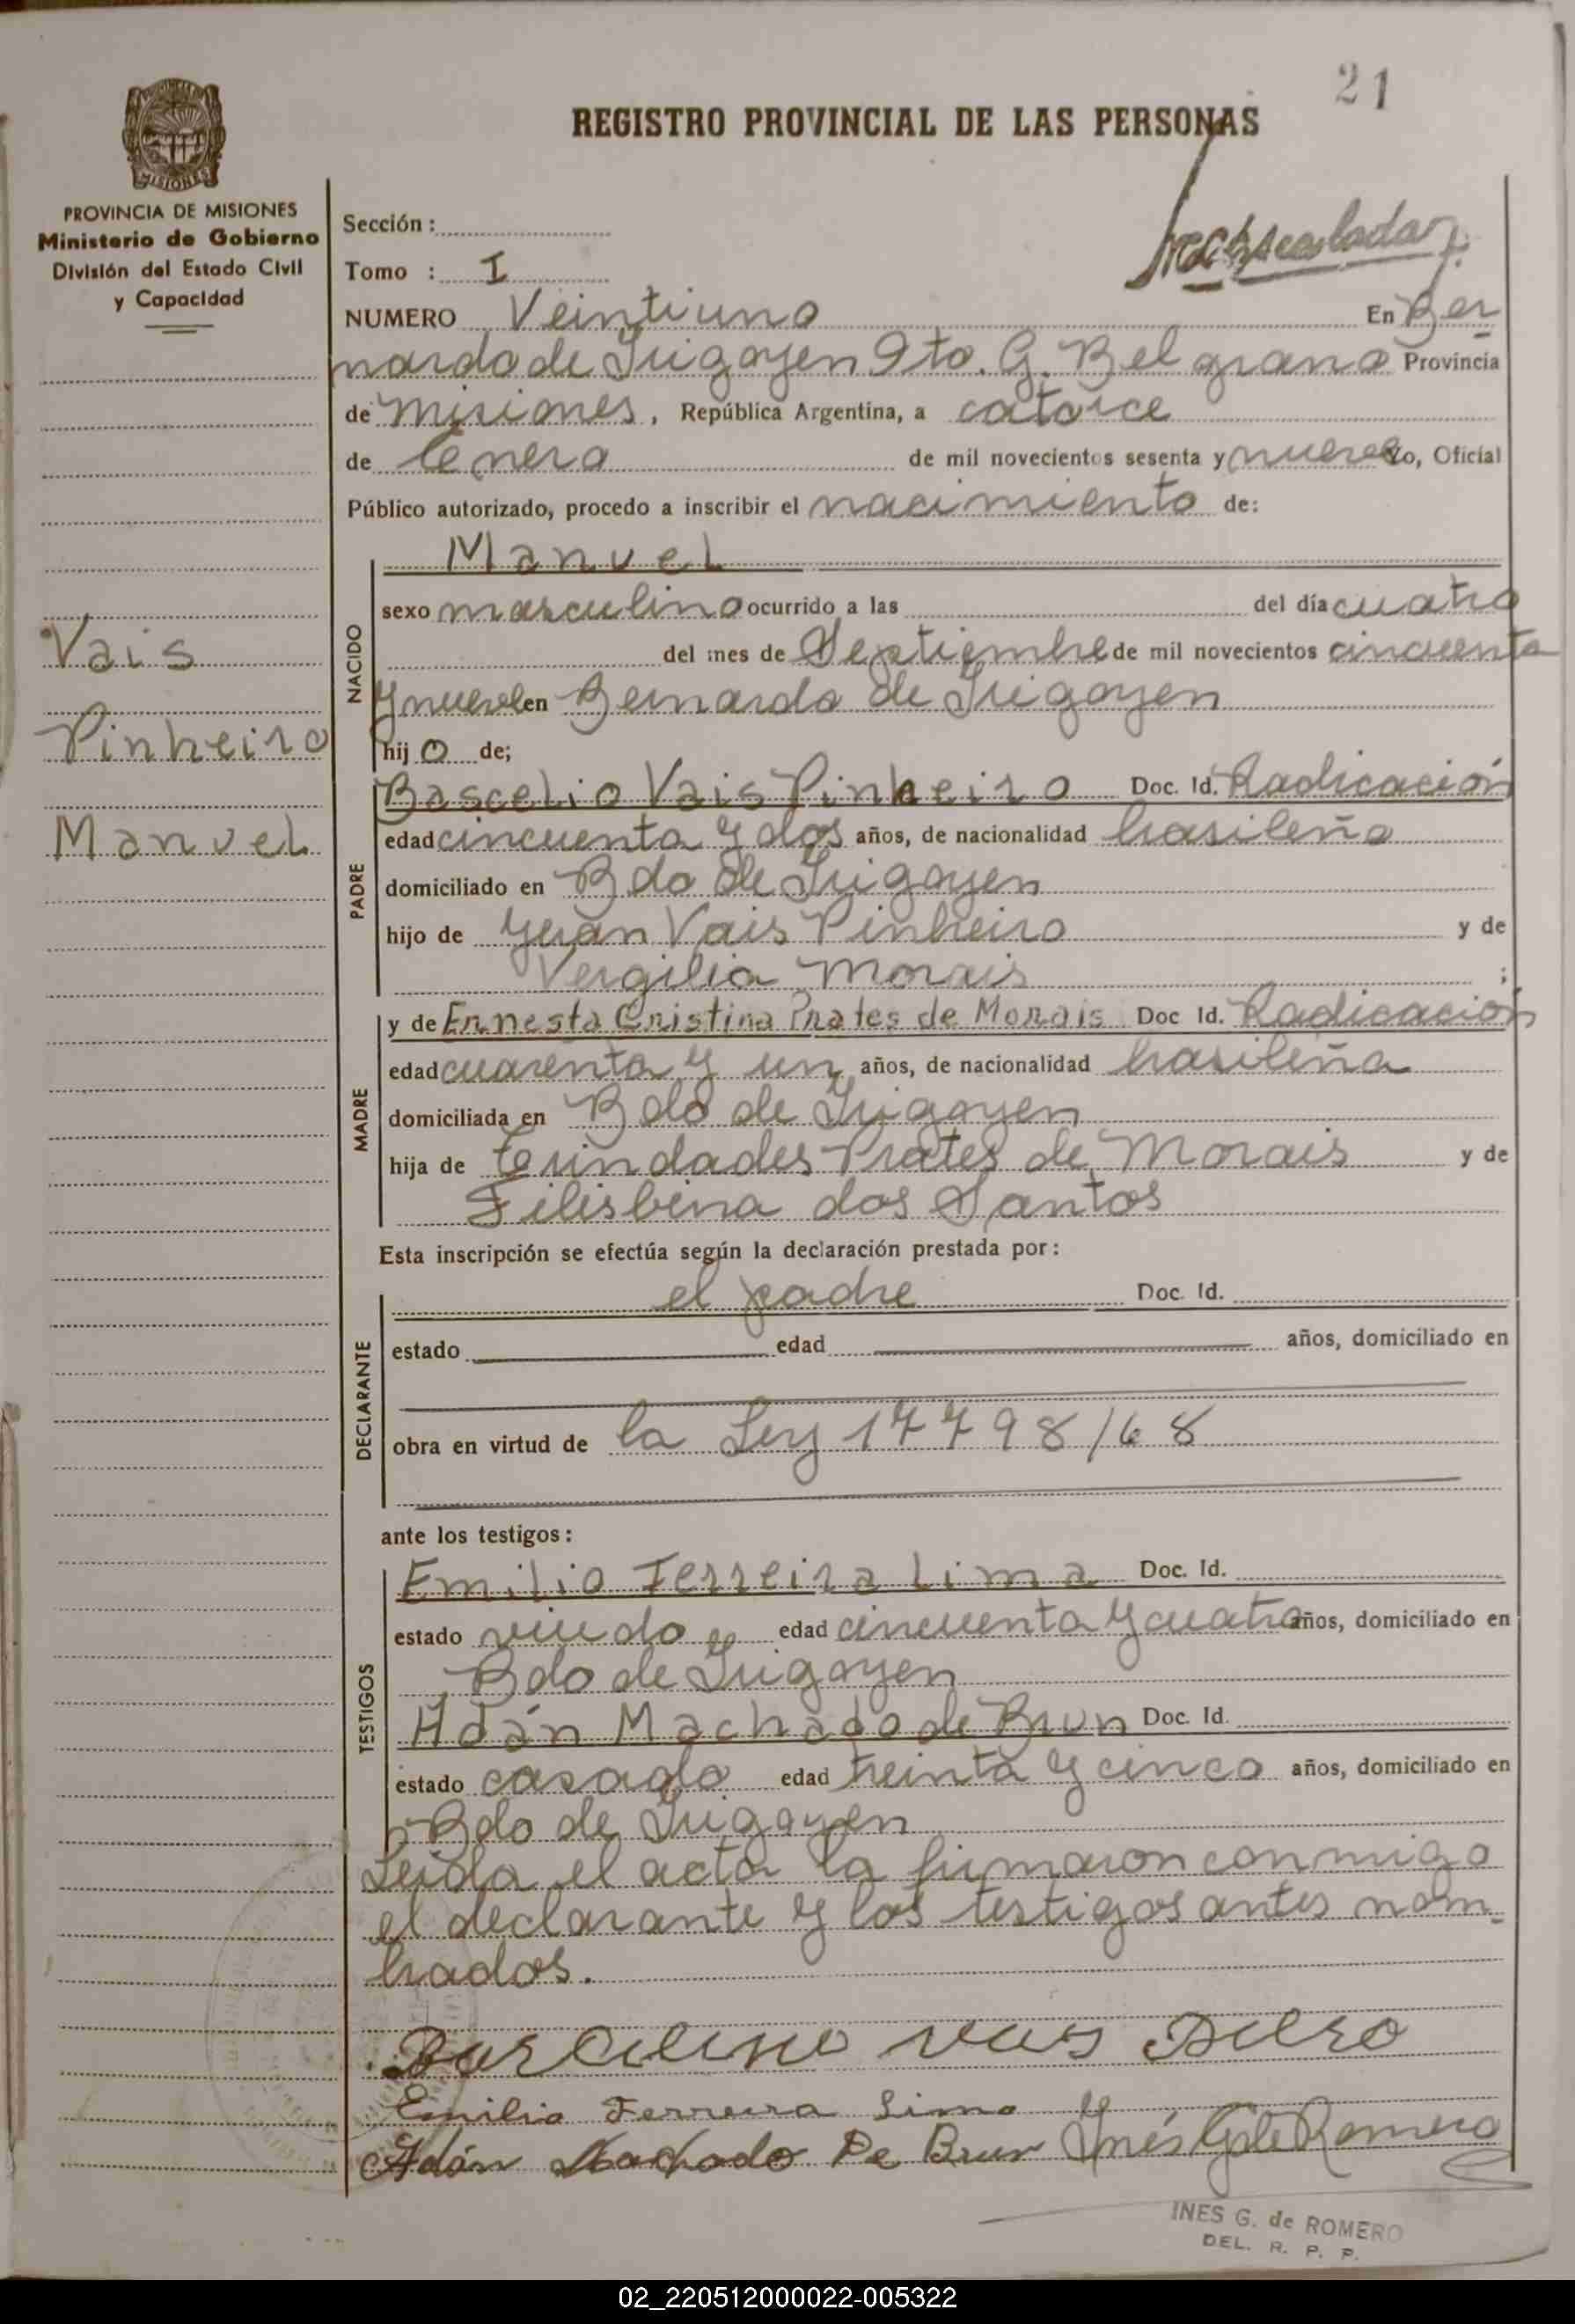 21
REGISTRO PROVINCIAL DE LAS PERSONAS
MISIONES
PROVINCIA DE MISIONES
Ministerio de Gobierno
División del Estado Civil
y Capacidad
Sección :
Tomo : I
NUMERO Veintiuno En Ber
nardo de Irigoyen Dto. G. Belgrano Provincia
de Misiones, República Argentina, a catorce
de Enero de mil novecientos sesenta y nueve Yo, Oficial
Público autorizado, procedo a inscribir el nacimiento de:
Manuel
sexo masculino ocurrido a las del día cuatro
del mes de Septiembre de mil novecientos cincuenta
y nueve en Bernardo de Irigoyen
hijo de;
NACIDO
Vais
Pinheiro
Manuel
Bascelio Vais Pinheiro Doc. Id. Radicación
edad cincuenta y dos años, de nacionalidad brasileño
domiciliado en Bdo de Irigoyen
hijo de Juan Vais Pinheiro y de
Vergilia Morais ;
PADRE
y de Ernesta Cristina Prates de Morais Doc Id. Radicación
edad cuarenta y un años, de nacionalidad brasileña
domiciliada en Bdo de Irigoyen
hija de Terindades Prates de Morais y de
Filisbina dos Santos
MADRE
Esta inscripción se efectúa según la declaración prestada por:
el padre Doc. Id.
estado edad años, domiciliado en
obra en virtud de la Ley 17798/68
DECLARANTE
ante los testigos:
Emilio Ferreira Lima Doc. Id.
estado viudo edad cincuenta y cuatro años, domiciliado en
Bdo de Irigoyen
Adán Machado de Brun Doc. Id.
estado casado edad treinta y cinco años, domiciliado en
Bdo de Irigoyen
TESTIGOS
Leida el acta la firmaron conmigo
el declarante y los testigos antes nom-
brados.
Emilio Ferreira Lima
Adán Machado De Brun Inés G. de Romero
INES G. de ROMERO
DEL. R. P. P.
02_220512000022-005322